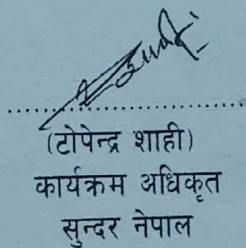 (टोपेन्द्र शाही)
कार्यक्रम अधिकृत
सुन्दर नेपाल